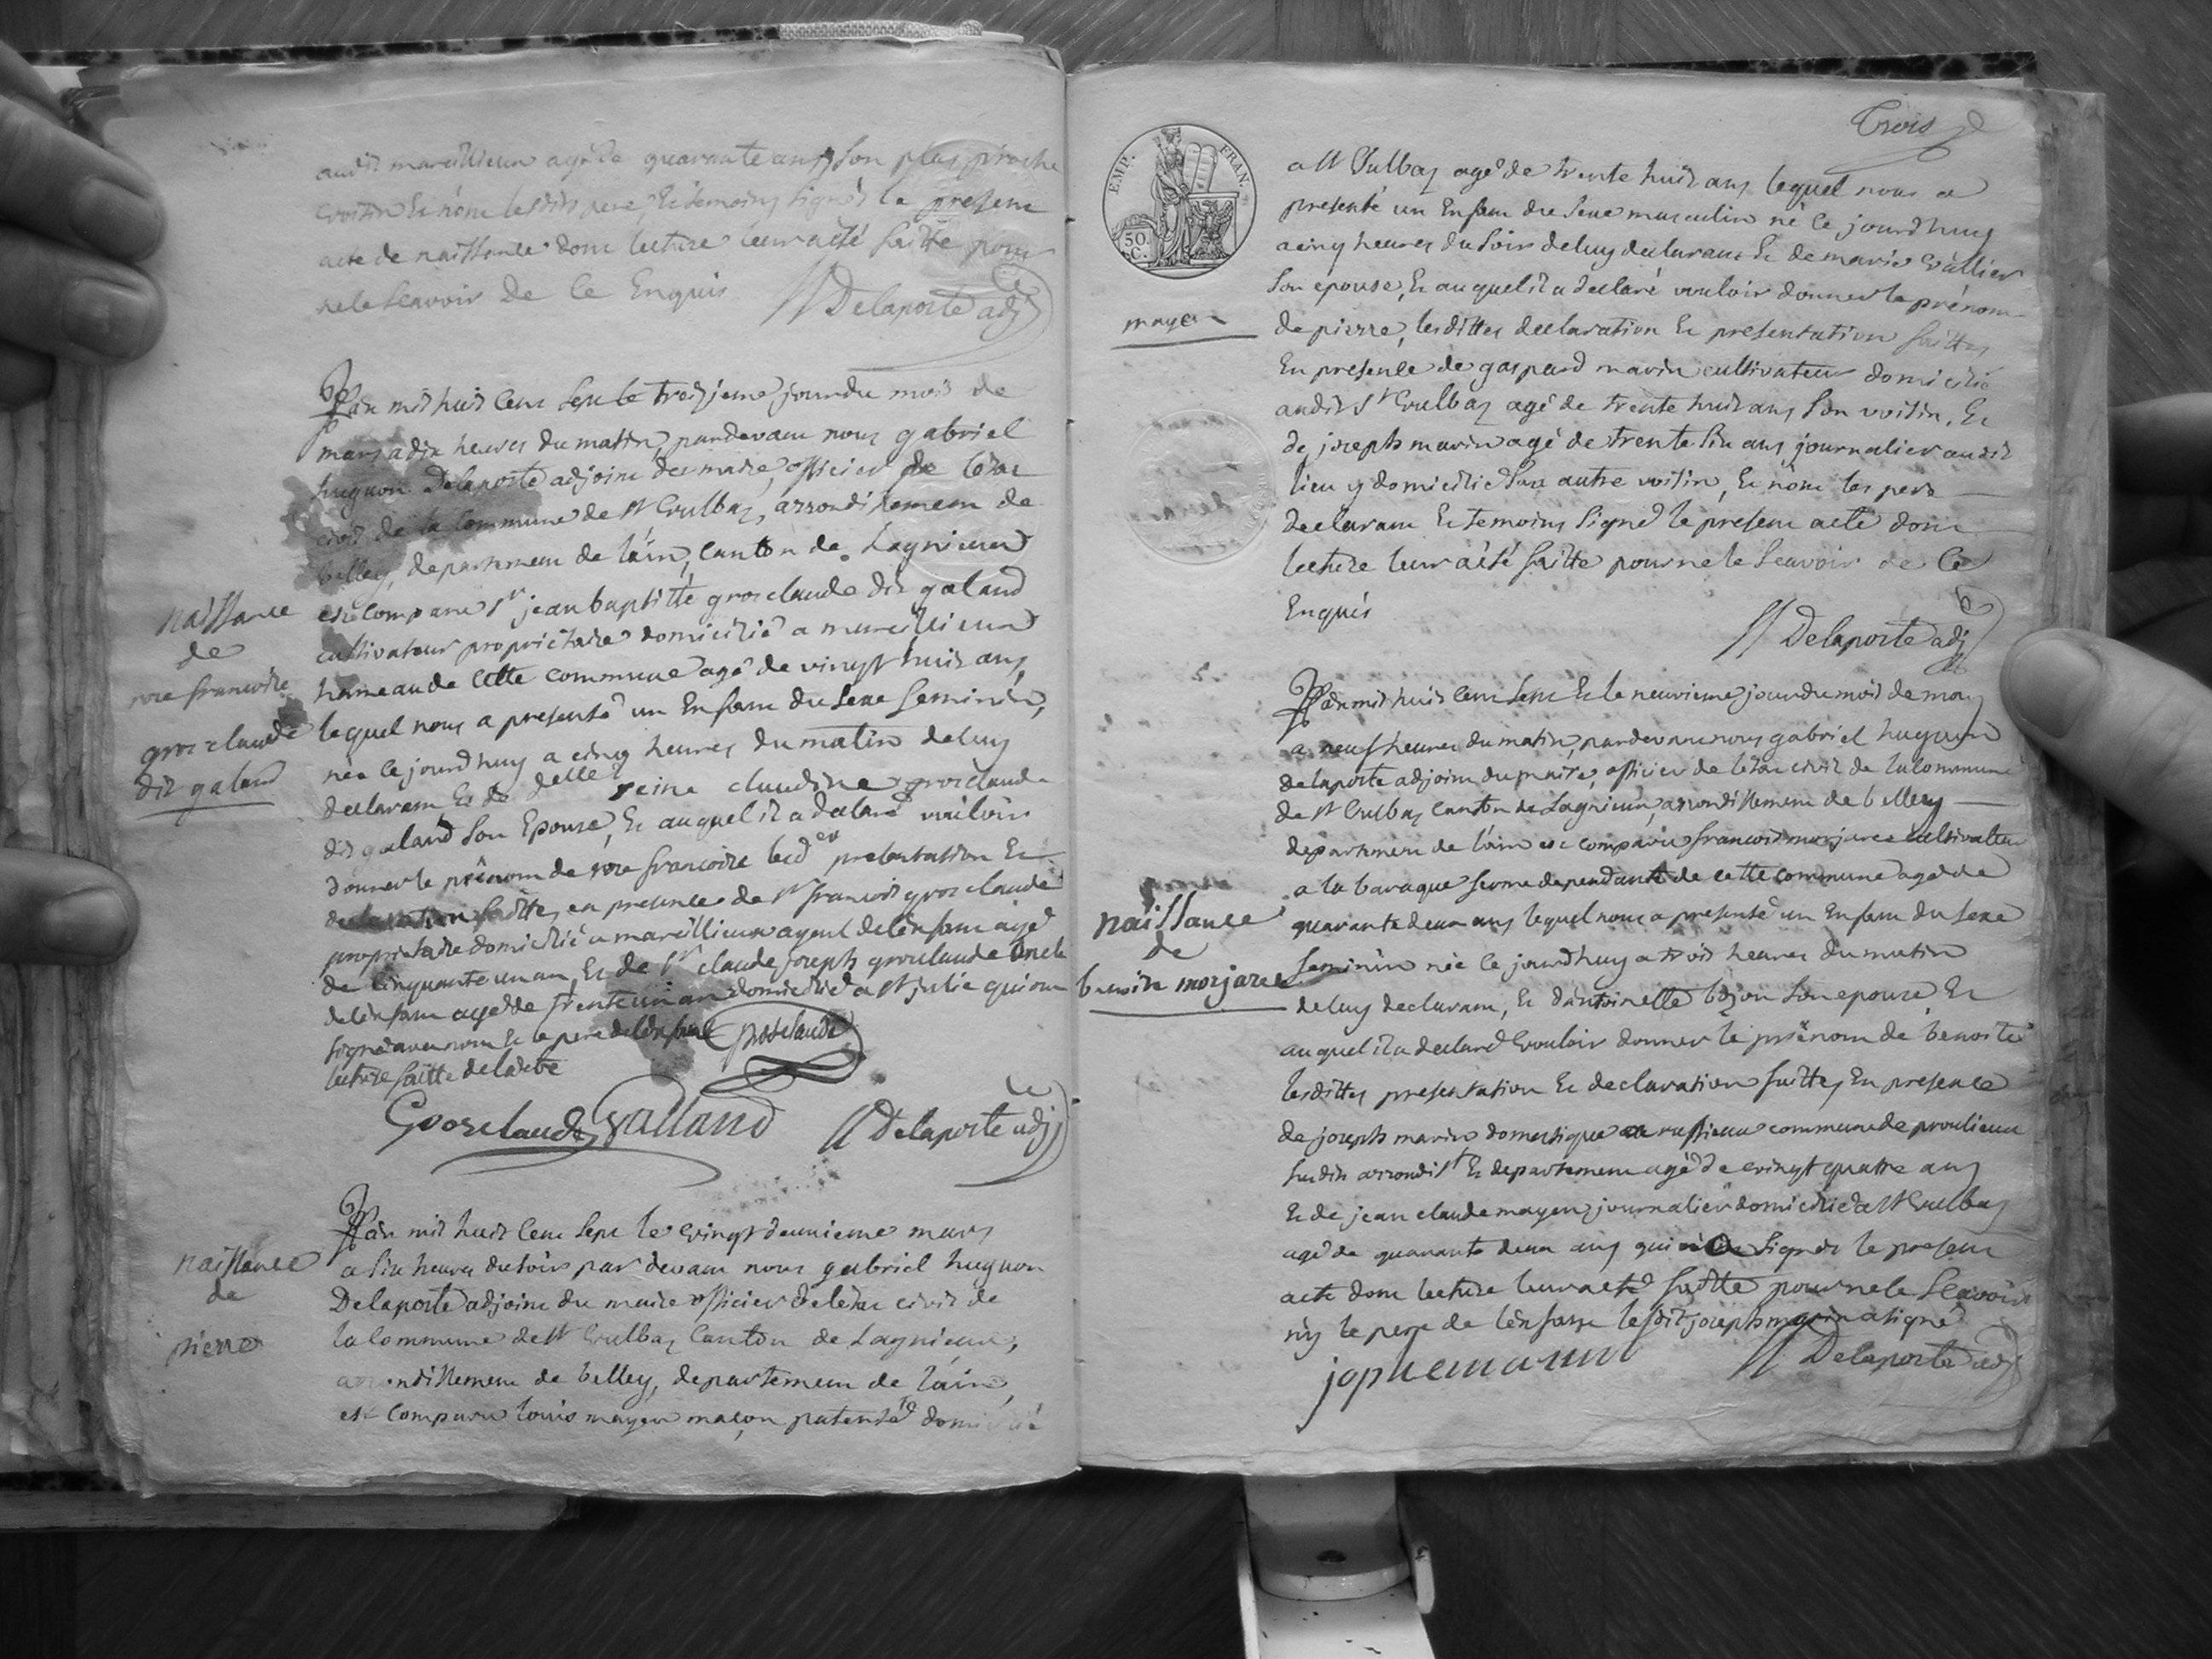 audit marcillieux agé de quarante ans, son plus proche
voisin Et n'ont lesdits pere, Et temoins signés le present
acte de naissance dont lecture leur a été faitte pour
ne le scavoir de ce Enquis Delaporte adj
L'an mil huit cent sept le treizieme jour du mois de
mars a dix heures du matin, pardevant nous gabriel
huguon Delaporte adjoint du maire, officier de l'état
civil de la Commune de st Vulbas, arrondissement de
belley, departement de l'ain, canton de Lagnieux
est comparu sr jean baptiste grosclaude dit galand
cultivateur proprietaire domicilié a marcillieux
hameau de cette commune agé de vingt huit ans,
lequel nous a presenté un Enfant du sexe feminin,
née ce jourd'huy a cinq heures du matin de luy
declarant Et de delle reine claudine grosclaude
dit galand son Epouse, Et auquel il a declaré vouloir
donner le prénom de rose francoise lesd es presentation Et
declaration faittes en presence de sr francois gros claude
proprietaire domicilié a marcillieux ayeul de l'enfant agé
de cinquante un an, Et de sr claude joseph grosclaude oncle
de l'enfant agé de trente un an domicilié a st julie qui ont
signé avec nous Et le pere de l'enfant grosclaude
lecture faitte de l'acte
Grosclaude Galland Delaporte adj
naissance
de
rose francoise
gros claude
dit galand
L'an mil huit cent sept le vingt deuxieme mars
a six heures du soir par devant nous gabriel huguon
Delaporte adjoint du maire officier de l'état civil de
la Commune de st Vulbas Canton de Lagnieux,
arrondissement de belley, departement de l'ain,
est comparu louis mayen maçon patenté domicilié
naissance
de
pierre
Trois
EMP. FRAN.
50. C.
mayen
a st Vulbas agé de trente huit ans lequel nous a
presenté un Enfant du sexe masculin né ce jourd'huy
a cinq heures du soir de luy declarant Et de marie vallier
son epouse, Et auquel il a declaré vouloir donner le prénom
de pierre, lesdittes declaration Et presentation faittes
En presence de gaspard marin cultivateur domicilié
audit st Vulbas agé de trente huit ans son voisin, Et
de joseph marin agé de trente six ans journalier audit
lieu y domicilié son autre voisin, Et n'ont les pere
declarant Et temoins signé le present acte dont
lecture leur a été faitte pour ne le scavoir de ce
Enquis
Delaporte adj
L'an mil huit cent sept Et le neuvieme jour du mois de may
a neuf heures du matin, pardevant nous gabriel huguon
delaporte adjoint du maire, officier de l'état civil de la commune
de st Vulbas canton de Lagnieux, arrondissement de belley
departement de l'ain est comparu francois morjaret cultivateur
a la baraque ferme dependante de cette commune agé de
quarante deux ans lequel nous a presenté un Enfant du sexe
feminin née ce jourd'huy a trois heures du matin
de luy declarant, Et d'antoinette bojon son epouse Et
auquel il a declaré vouloir donner le prénom de benoite
lesdittes presentation Et declaration faittes En presence
de joseph marin domestique a rustieux commune de proulieux
susdit arrondist Et departement agé de vingt quatre ans
Et de jean claude mayen journalier domicilié a st Vulbas
agé de quarante deux ans qui signés le present
acte dont lecture leur a été faitte pour ne le Scavoir
n'y le pere de l'enfant ledit joseph marin a signé
jophe marin Delaporte adj
naissance
de
benoite morjaret